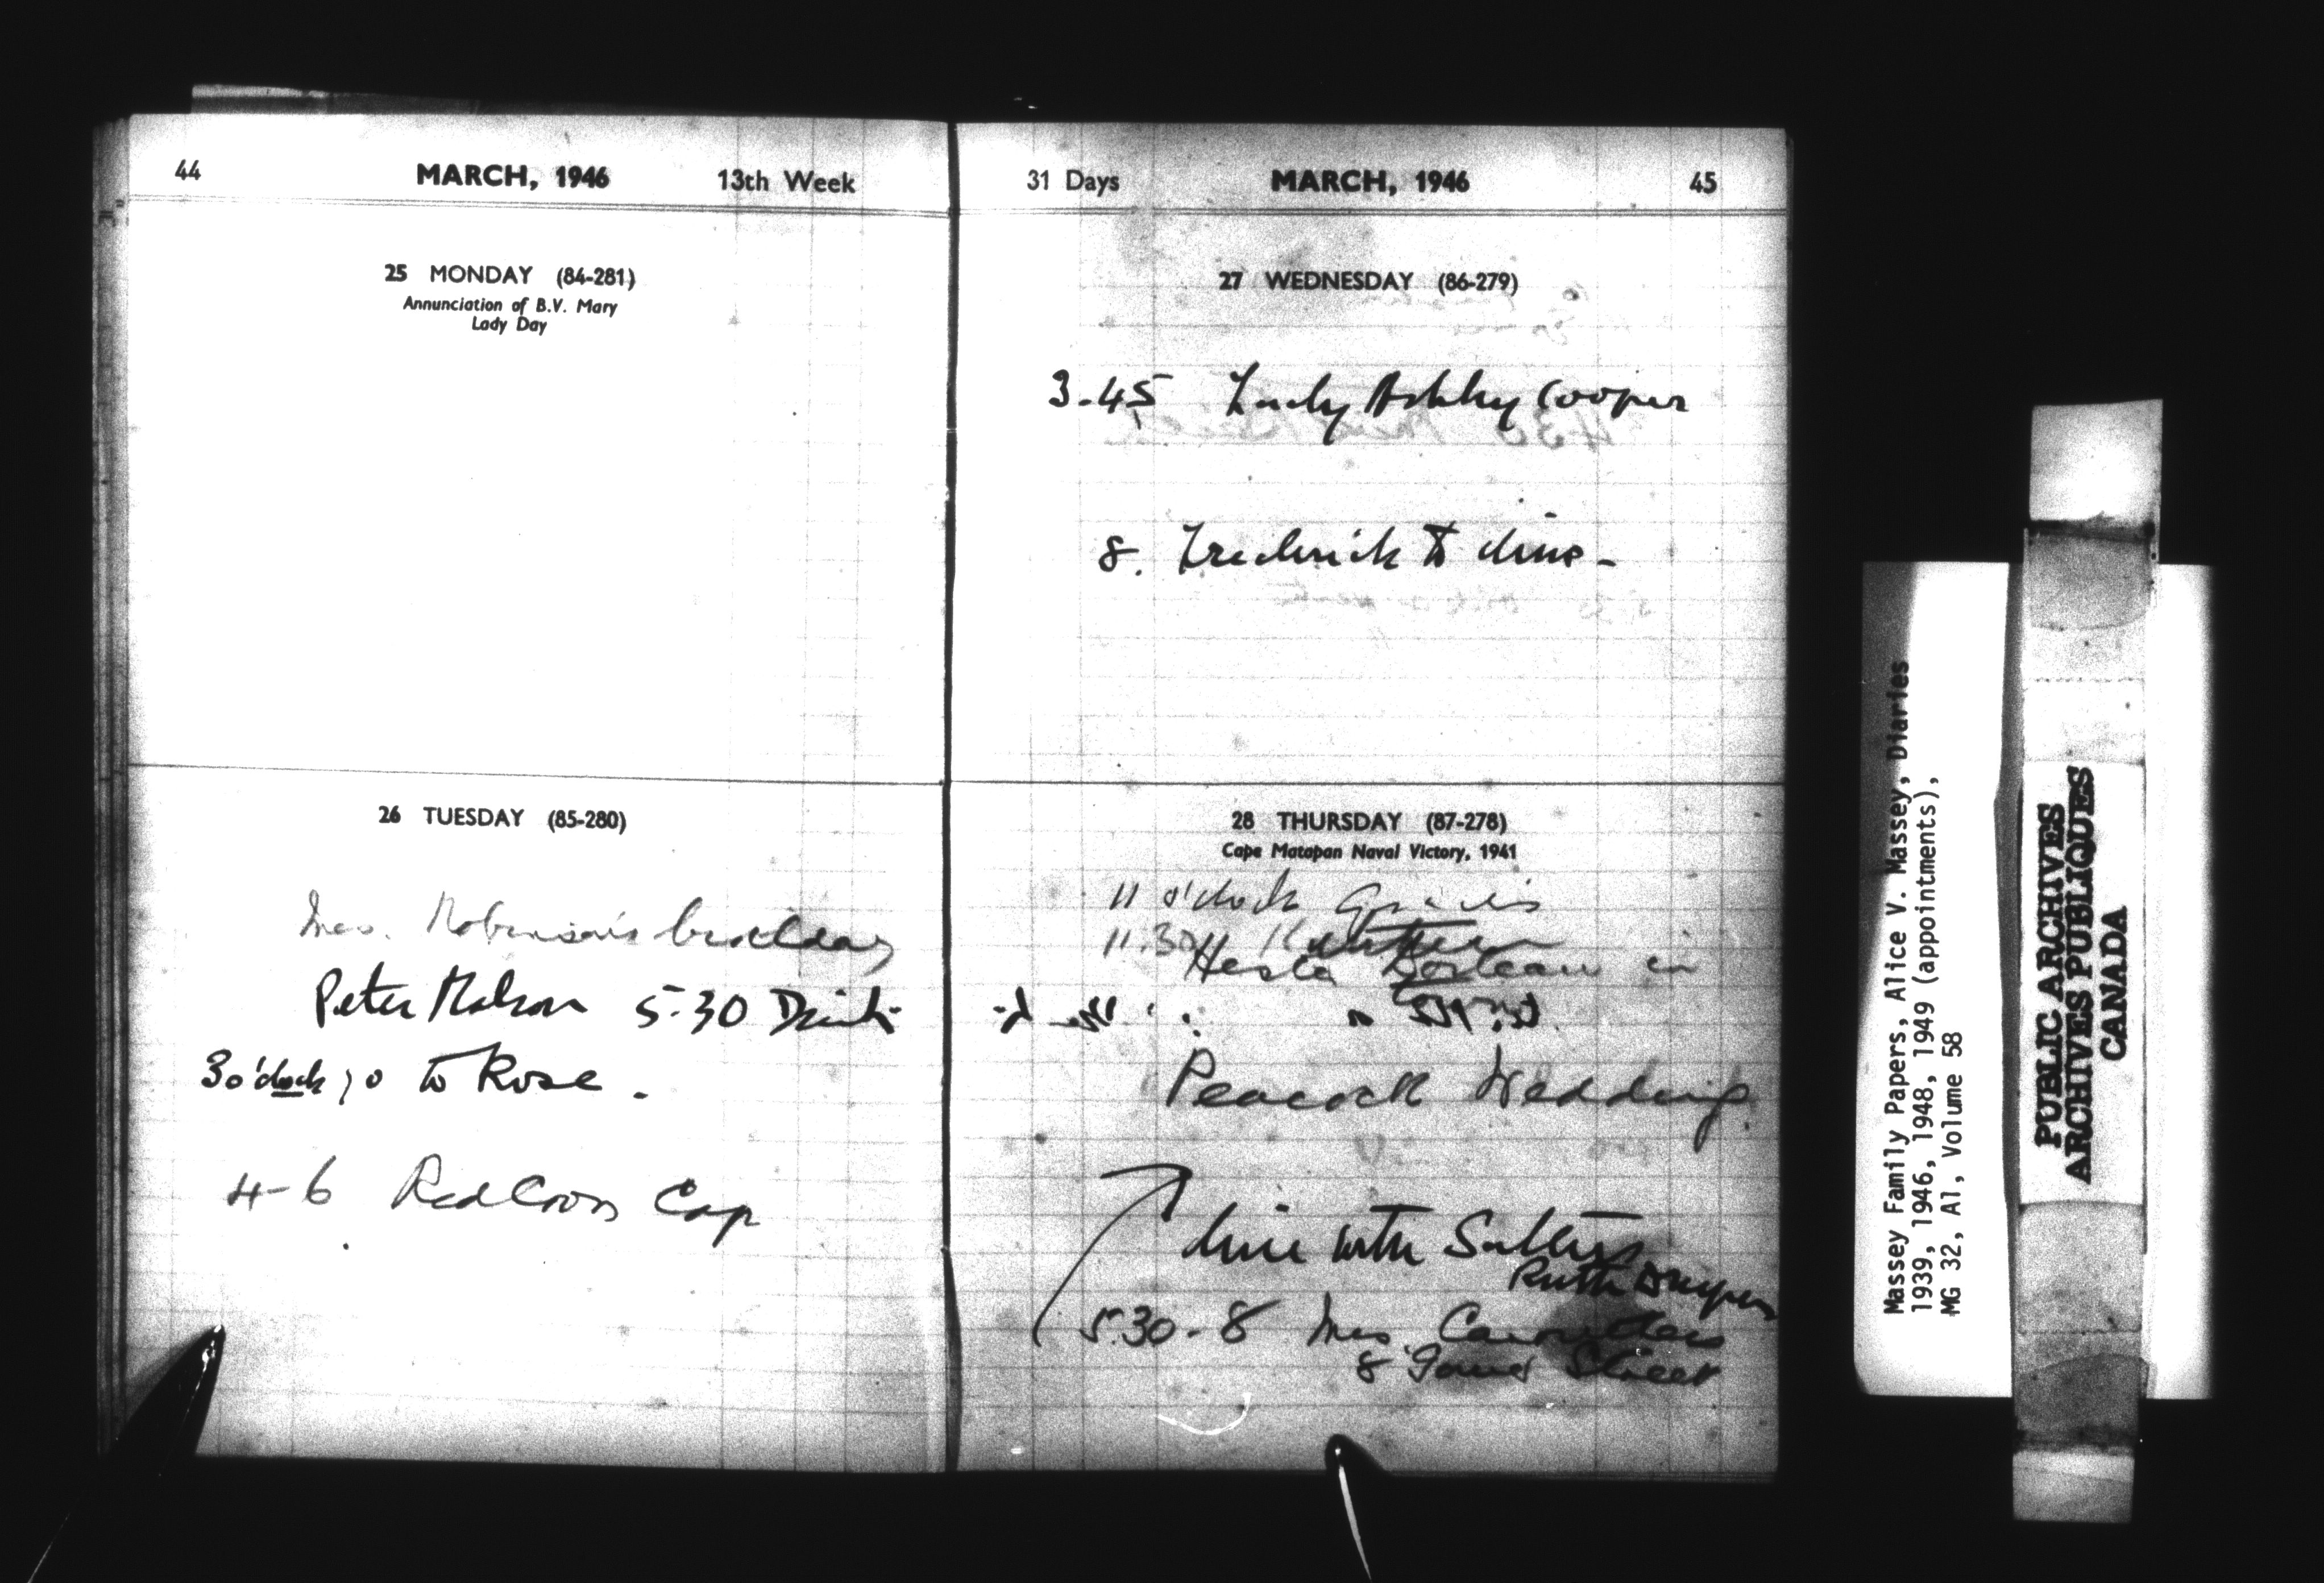 44 MARCH, 1946 13th Week
25 MONDAY (84-281)
Annunciation of B.V. Mary
Lady Day
26 TUESDAY (85-280)
Mrs. Robinson's birthday
Peter Malson 5-30 Drink
3 o'clock go to Rose.
4-6 Red Cross Cap
31 Days MARCH, 1946 45
27 WEDNESDAY (86-279)
3.45 Lady Ashley Cooper
8. Frederick to dine-
28 THURSDAY (87-278)
Cape Matapan Naval Victory, 1941
11 o'clock
11.30
Hesta in
Peacock Wedding.
dine with
Ruth Draper
5.30-8 Mrs. Carruthers
8 Street
Massey Family Papers, Alice V. Massey, Diaries
1939, 1946, 1948, 1949 (appointments),
MG 32, A1, Volume 58
PUBLIC ARCHIVES
ARCHIVES PUBLIQUES
CANADA